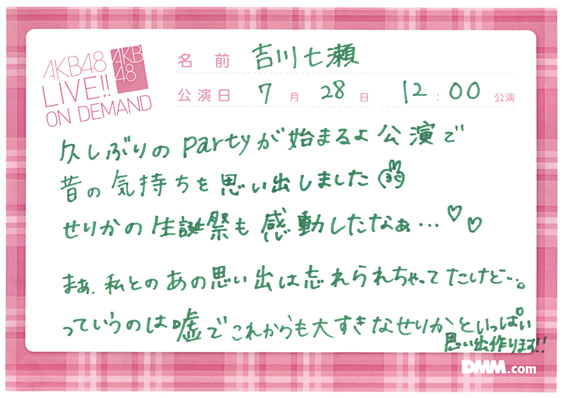 AKB48
LIVE!!
ON DEMAND
AKB
48
名前 吉川七瀬
公演日 7月28日 12:00公演
久しぶりのpartyが始まるよ公演で
昔の気持ちを思い出しました
せりかの生誕祭も感動したなぁ…♡♡
まぁ、私とのあの思い出は忘れられちゃってたけど…。
っていうのは嘘でこれからも大すきなせりかといっぱい
思い出作ります!!
DMM.com